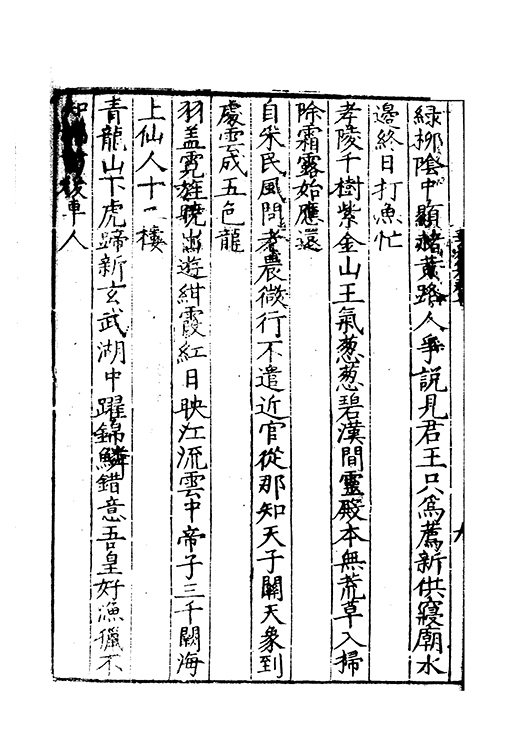 綠柳陰中顯赭黃路人爭說見君王只爲薦新供寢廟水
邊終日打魚忙
孝陵千樹紫金山王氣葱葱碧漢間靈殿本無荒草入掃
除霜露始應還
自采民風問老農微行不遣近官從那知天子關天象到
處雲成五色龍
羽盖霓旌曉出遊紺霞紅日映江流雲中帝子三千闕海
上仙人十二樓
青龍山下虎蹄新玄武湖中躍錦鱗錯意吾皇好漁獵不
知 後車人